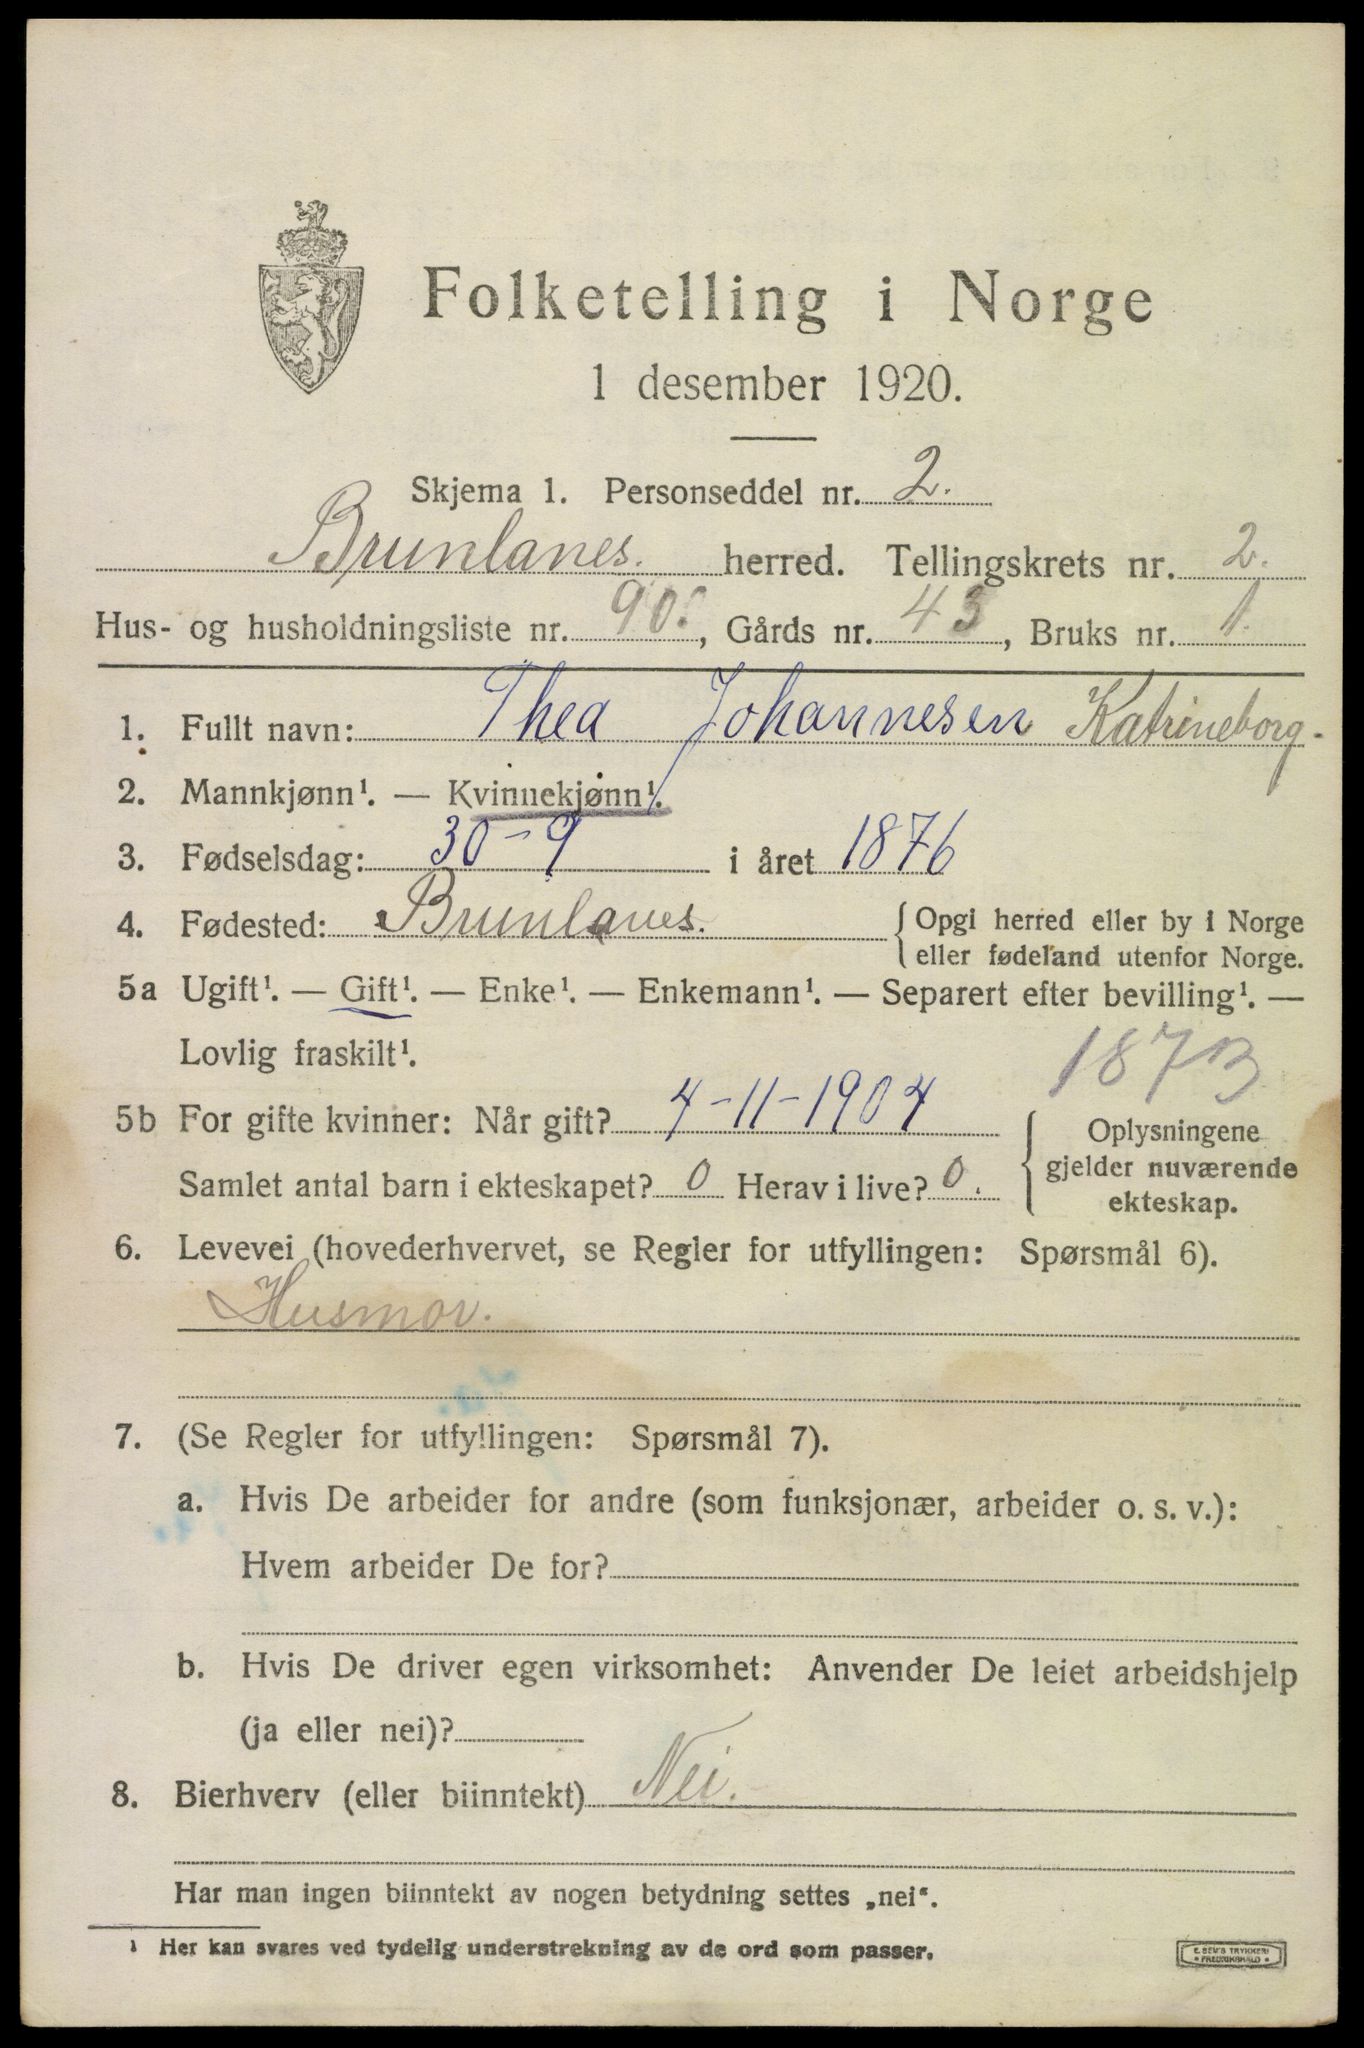 Folketelling i Norge
1 desember 1920.
Skjema 1. Personseddel nr. 2.
Brunlanes. herred. Tellingskrets nr. 2.
Hus- og husholdningsliste nr. 90., Gårds nr. 43, Bruks nr. 1.
1. Fullt navn: Thea Johannesen Katrineborg.
2. Mannkjønn¹. — Kvinnekjønn¹.
3. Fødselsdag: 30-9 i året 1876
4. Fødested: Brunlanes. { Opgi herred eller by i Norge
eller fødeland utenfor Norge.
5a Ugift¹. — Gift¹. — Enke¹. — Enkemann¹. — Separert efter bevilling¹. —
Lovlig fraskilt¹.
1873
5b For gifte kvinner: Når gift? 4-11-1904
Samlet antal barn i ekteskapet? 0 Herav i live? 0.
{ Oplysningene
gjelder nuværende
ekteskap.
6. Levevei (hovederhvervet, se Regler for utfyllingen: Spørsmål 6).
Husmor.
7. (Se Regler for utfyllingen: Spørsmål 7).
a. Hvis De arbeider for andre (som funksjonær, arbeider o. s. v.):
Hvem arbeider De for?
b. Hvis De driver egen virksomhet: Anvender De leiet arbeidshjelp
(ja eller nei)?
8. Bierhverv (eller biinntekt) Nei.
Har man ingen biinntekt av nogen betydning settes „nei“.
¹ Her kan svares ved tydelig understrekning av de ord som passer.
E. SEM'S TRYKKERI
• FREDRIKSHALD •